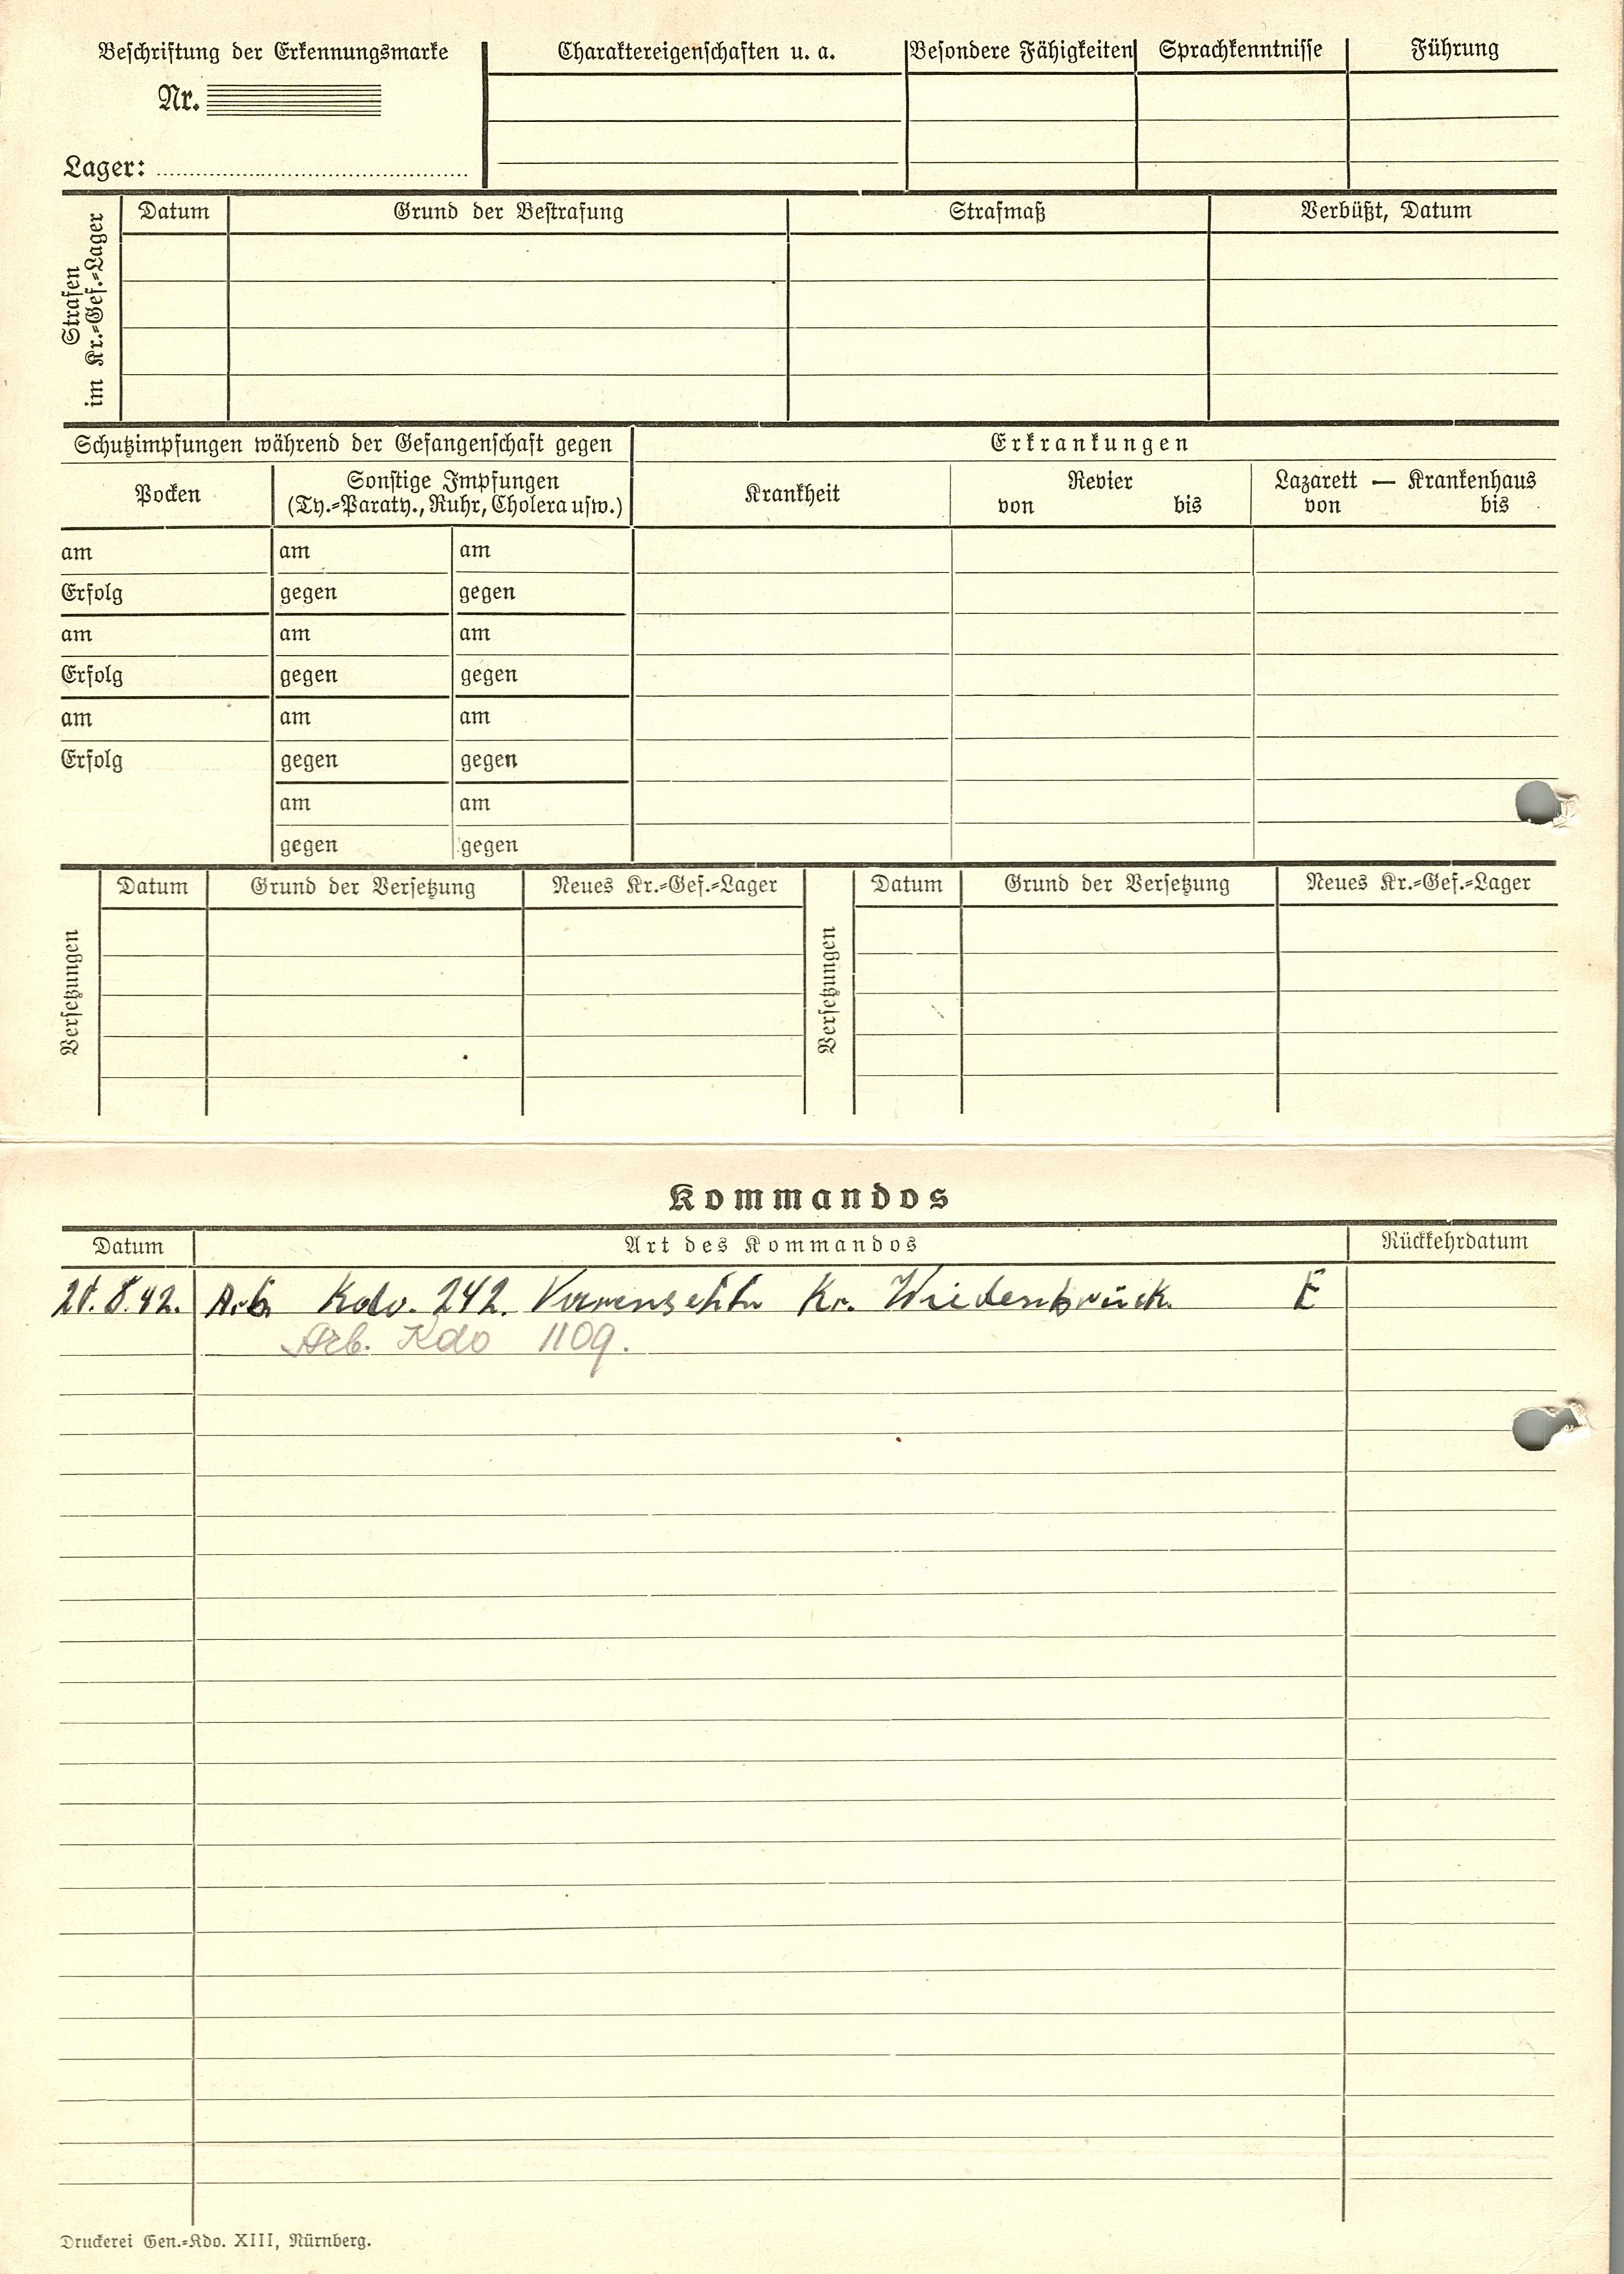 Beschriftung der Erkennungsmarke
Nr.
Lager:
Charaktereigenschaften u. a.
Besondere Fähigkeiten
Sprachkenntnisse
Führung
Strafen
im Kr.=Gef.=Lager
Datum
Grund der Bestrafung
Strafmaß
Verbüßt, Datum
Schutzimpfungen während der Gefangenschaft gegen
Erkrankungen
Pocken
Sonstige Impfungen
(Ty.=Paraty., Ruhr, Cholera usw.)
Krankheit
Revier
von bis
Lazarett — Krankenhaus
von bis
am am am
Erfolg gegen gegen
am am am
Erfolg gegen gegen
am am am
Erfolg gegen gegen
am am
gegen gegen
Versetzungen
Datum
Grund der Versetzung
Neues Kr.=Gef.=Lager
Versetzungen
Datum
Grund der Versetzung
Neues Kr.=Gef.=Lager
Kommandos
Datum Art des Kommandos Rückkehrdatum
21.8.42. Arb. Kdo. 242. Kr. Wiedenbrück. E
Arb. Kdo 1109.
Druckerei Gen.=Kdo. XIII, Nürnberg.